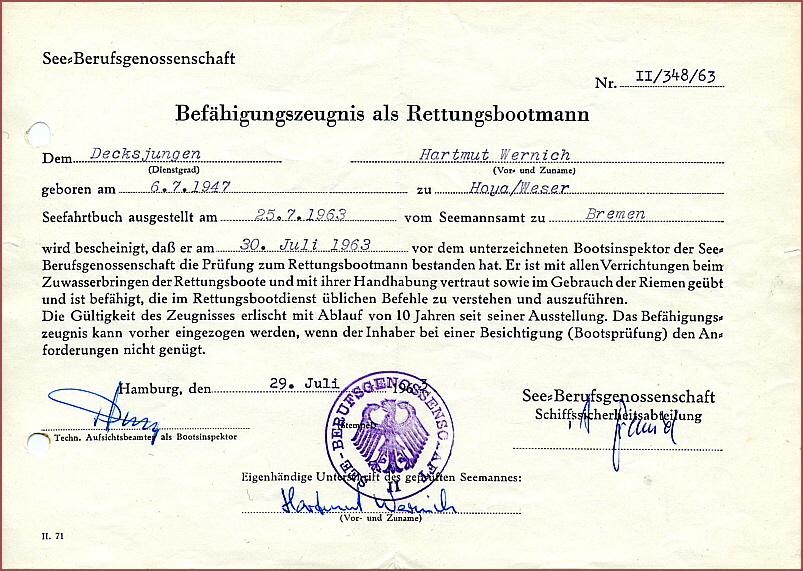 See-Berufsgenossenschaft
Nr. II/348/63
Befähigungszeugnis als Rettungsbootmann
Dem Decksjungen Hartmut Wernich
(Dienstgrad) (Vor- und Zuname)
geboren am 6.7.1947 zu Hoya/Weser
Seefahrtbuch ausgestellt am 25.7.1963 vom Seemannsamt zu Bremen
wird bescheinigt, daß er am 30. Juli 1963 vor dem unterzeichneten Bootsinspektor der See-
Berufsgenossenschaft die Prüfung zum Rettungsbootmann bestanden hat. Er ist mit allen Verrichtungen beim
Zuwasserbringen der Rettungsboote und mit ihrer Handhabung vertraut sowie im Gebrauch der Riemen geübt
und ist befähigt, die im Rettungsbootdienst üblichen Befehle zu verstehen und auszuführen.
Die Gültigkeit des Zeugnisses erlischt mit Ablauf von 10 Jahren seit seiner Ausstellung. Das Befähigungs-
zeugnis kann vorher eingezogen werden, wenn der Inhaber bei einer Besichtigung (Bootsprüfung) den An-
forderungen nicht genügt.
Hamburg, den 29. Juli 1963
See-Berufsgenossenschaft
Schiffssicherheitsabteilung
(Stempel)
SEE-BERUFSGENOSSENSCHAFT
II
Techn. Aufsichtsbeamter als Bootsinspektor
Eigenhändige Unterschrift des geprüften Seemannes:
Hartmut Wernich
(Vor- und Zuname)
II. 71